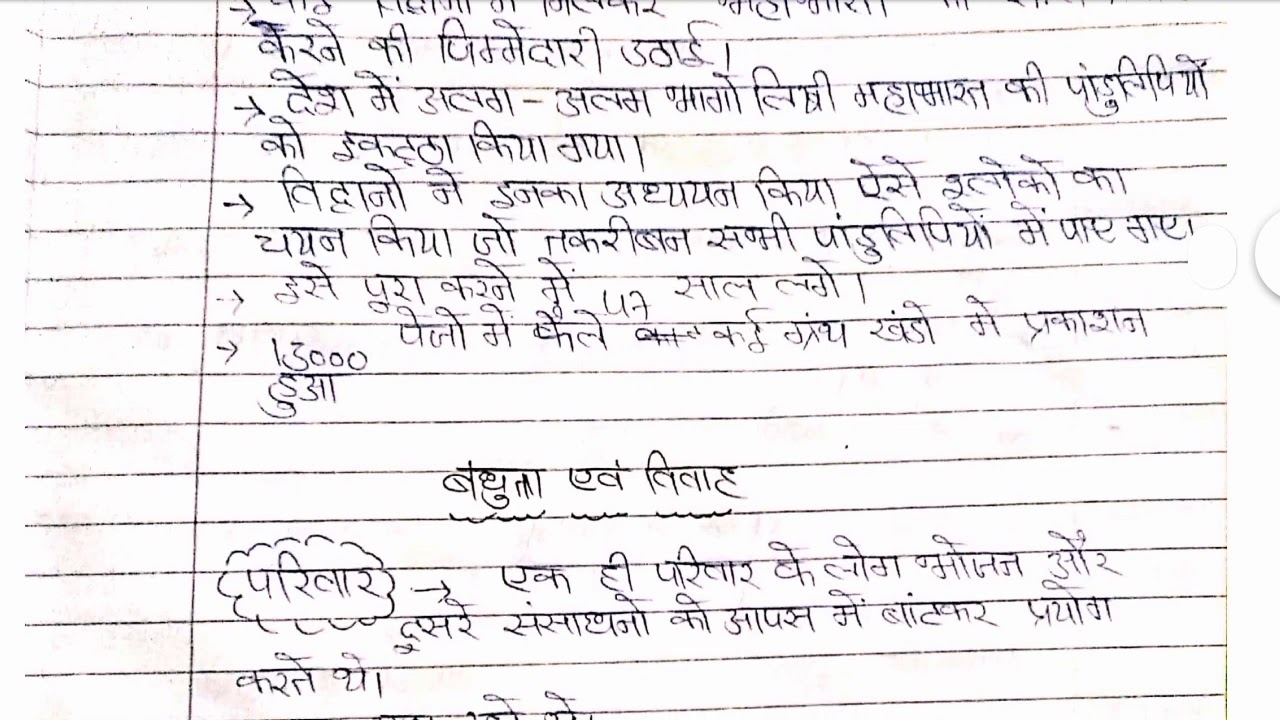 करने की जिम्मेदारी उठाई।
→ देश में अलग-अलग भागो लिखी महाभारत की पांडुलिपियों
को इकट्ठा किया गया।
→ विद्वानो ने इनका अध्ययन किया ऐसे श्लोको का
चयन किया जो तकरीबन सभी पांडुलिपियों में पाए गए।
→ इसे पूरा करने में 47 साल लगे।
→ 13000 पेजो में फैले कई ग्रंथ खंडो मे प्रकाशन
हुआ
बंधुता एवं विवाह
परिवार → एक ही परिवार के लोग भोजन और
दूसरे संसाधनो को आपस में बांटकर प्रयोग
करते थे।